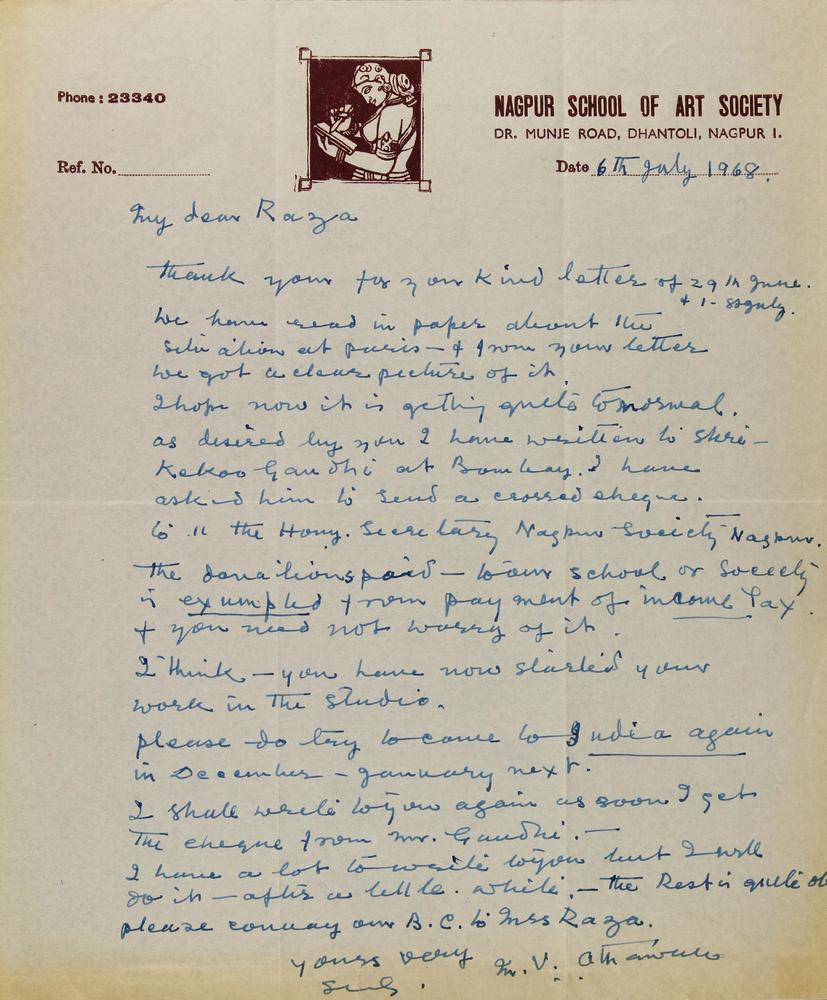 Phone : 23340
NAGPUR SCHOOL OF ART SOCIETY
DR. MUNJE ROAD, DHANTOLI, NAGPUR 1.
Ref. No.
Date 6th July 1968.
My dear Raza
Thank your for your kind letter of 29th June.
& 1-
We have read in paper about the
situation at paris - & from your letter
we got a clear picture of it.
I hope now it is getting quite to normal.
as desired by you I have written to Shri -
Kekoo Gandhi at Bombay. I have
asked him to send a crossed cheque.
to " the Hony. Secretary Nagpur Society Nagpur.
The donations paid - to our school or Society
is exumpted from payment of income Tax.
& you need not worry of it.
I think - you have now started your
work in the studio.
please do try to come to India again
in December - January next.
I shall write to you again as soon I get
The cheque from Mr. Gandhi. -
I have a lot to write to you but I will
do it - after a little. while. - the Rest is quite
please convay our B.C. to Mrs Raza.
yours very
M. V. Athawale